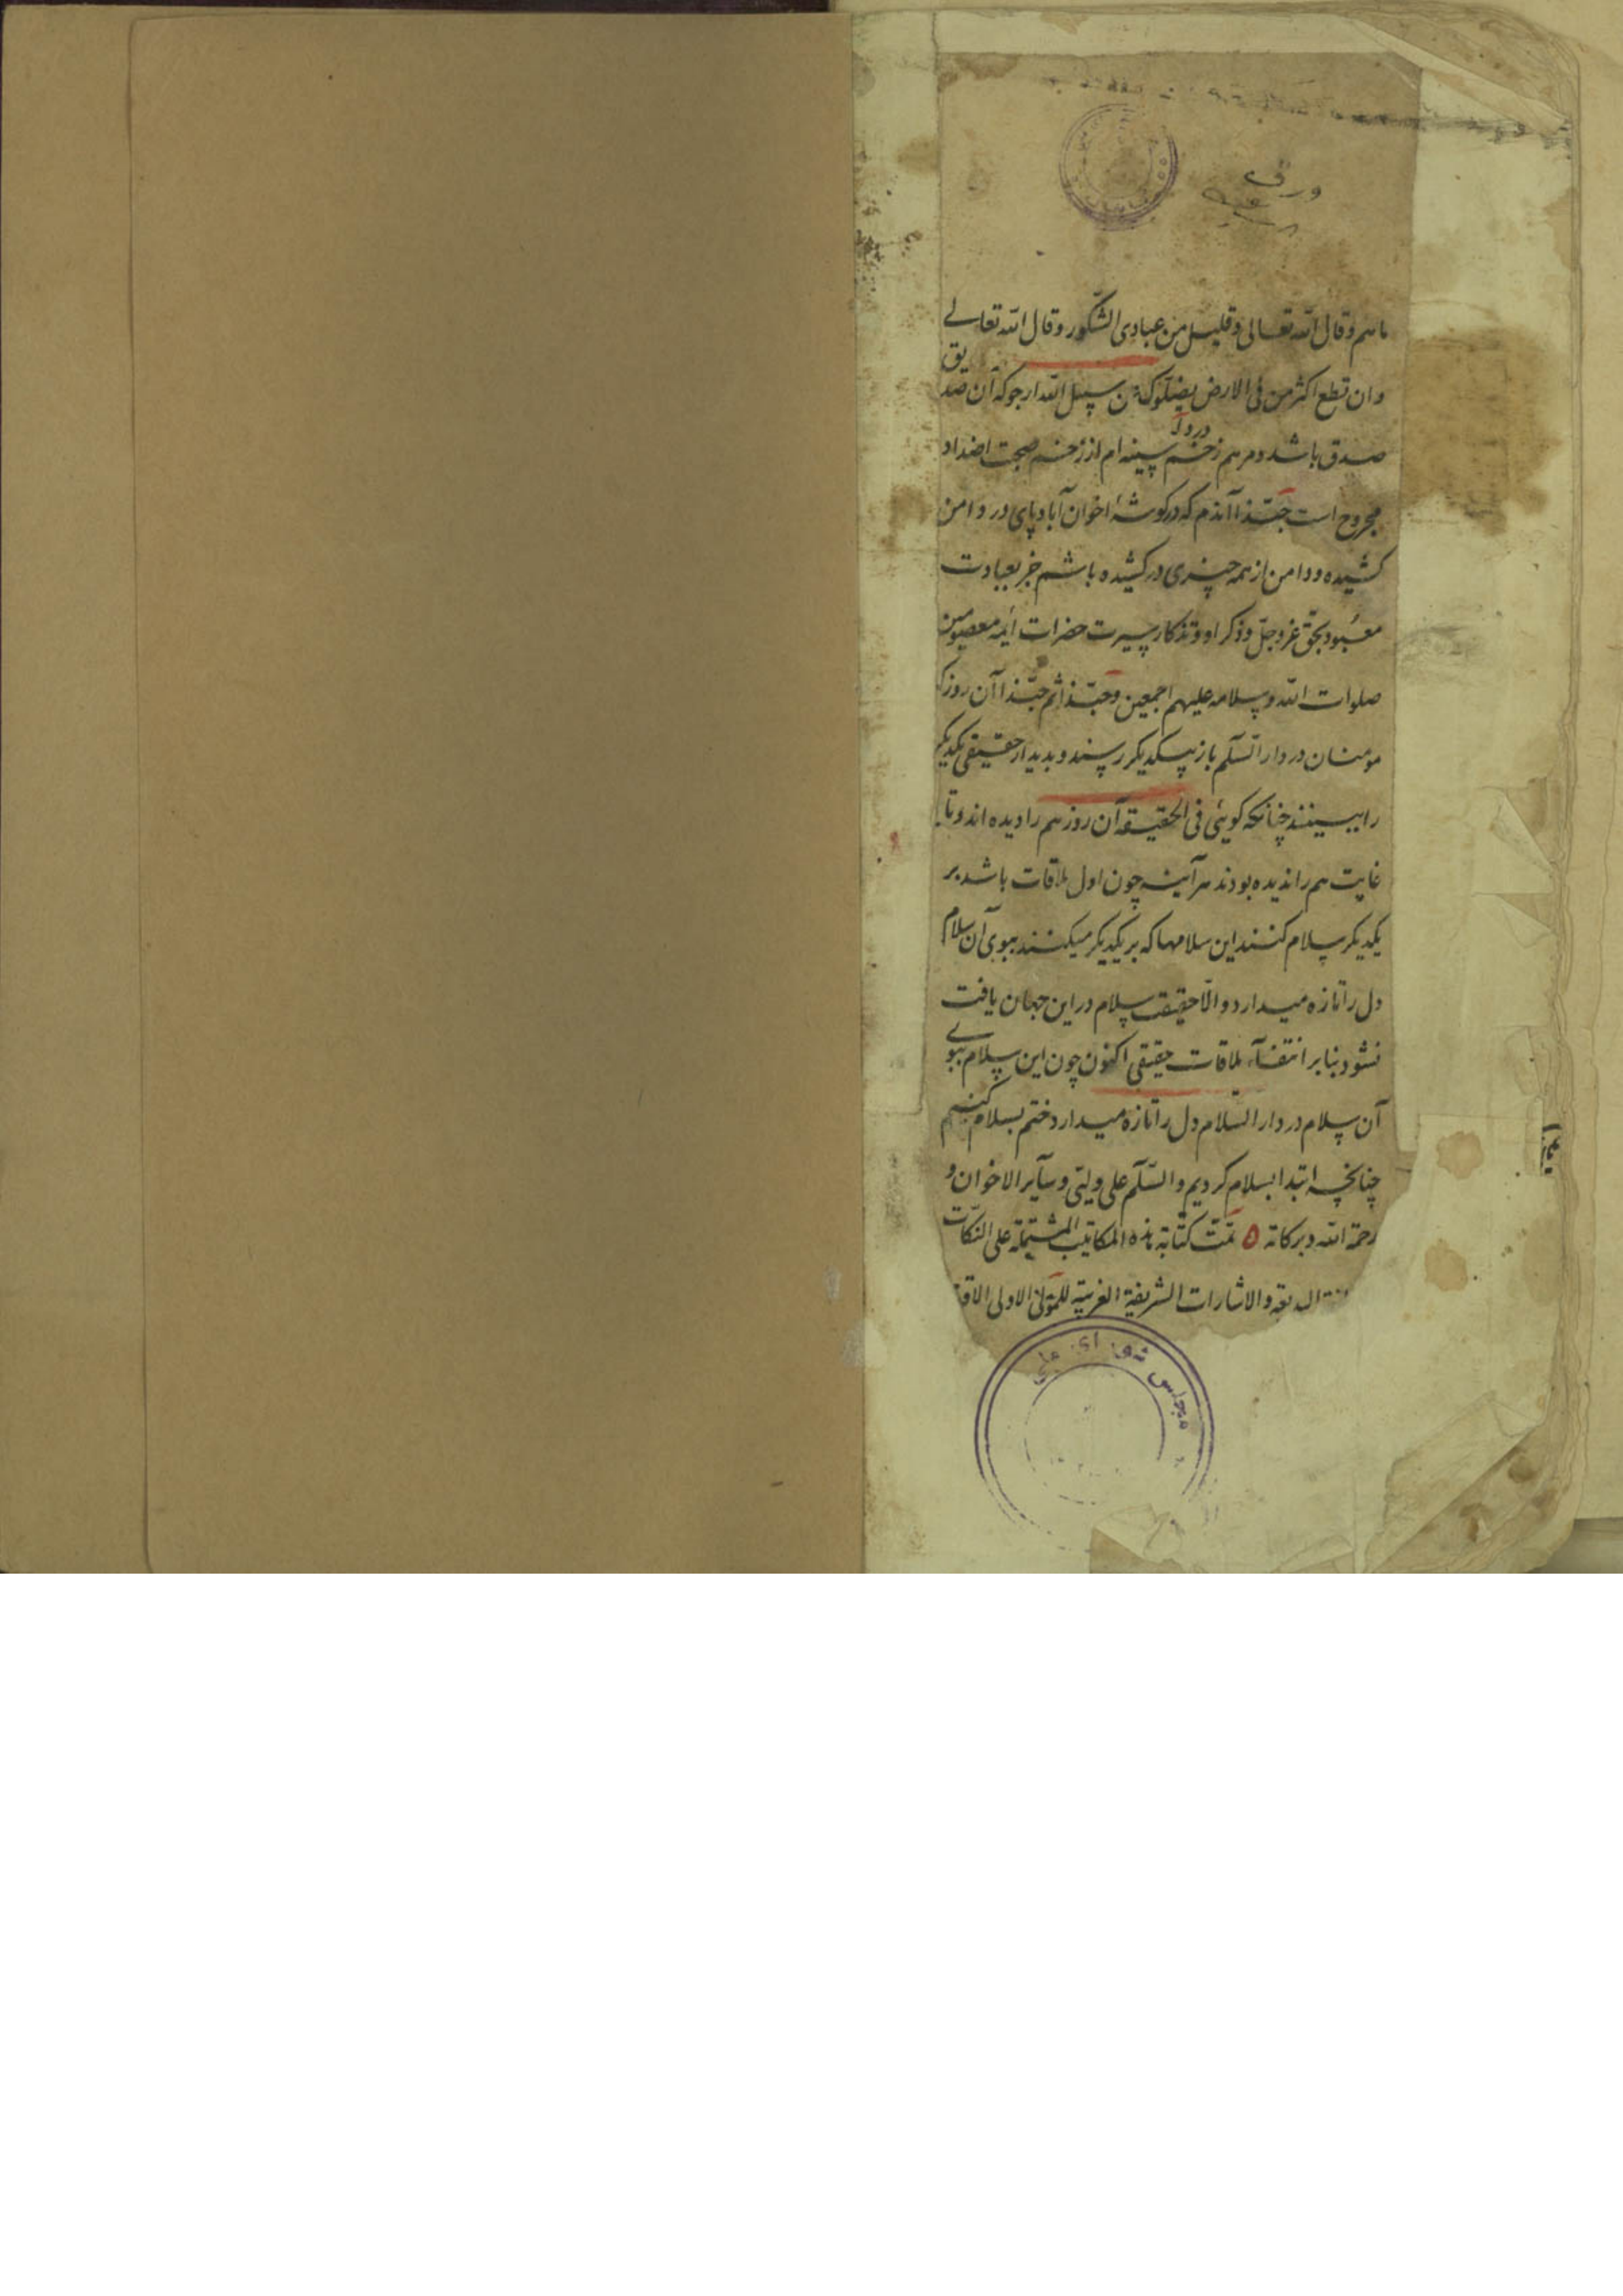 ورق
ماهم وقال الله تعالی وقلیل من عبادی الشّکور وقال الله تعالی
وان تطع اکثر من فی الارض یضلّوک عن سبیل الله ارجو که آن صدیق
صدق باشد و مرهم زخم سینه ام از زخم صحبت اضداد
مجروح است حبّذا آندم که در کوشهٔ اخوان آباد پای در دامن
کشیده و دامن از همه چیزی در کشیده باشم جز بعبادت
معبود بحق عزوجلّ و ذکر او و تذکار سیرت حضرات ائمه معصومین
صلوات الله وسلامه علیهم اجمعین وحبّذا ثم حبّذا آن روز که
مومنان در دار السّلم باز بیکدیکر رسند و بدیدار حقیقی یکدیکر
را ببینند چنانکه کوئی فی الحقیقه آن روز هم را دیده اند و تا
غایت هم را ندیده بودند هرآینه چون اول ملاقات باشد بر
یکدیکر سلام کنند این سلامها که بر یکدیکر میکنند ببوی آن سلام
دل را تازه میدارد و الّا حقیقت سلام در این جهان یافت
نشود بنابر انتفآء ملاقات حقیقی اکنون چون این سلام ببوی
آن سلام در دار السّلام دل را تازه میدارد ختم بسلام کنیم
چنانچه ابتدا بسلام کردیم والسّلم علی ولیّی وسآیر الاخوان و
رحمة الله وبرکاته ۵ تمّت کتابة هذه المکاتیب المشتملة علی النکات
والاشارات الشریفة الغریبة للمولی الاولی
مجلس شورای ملی